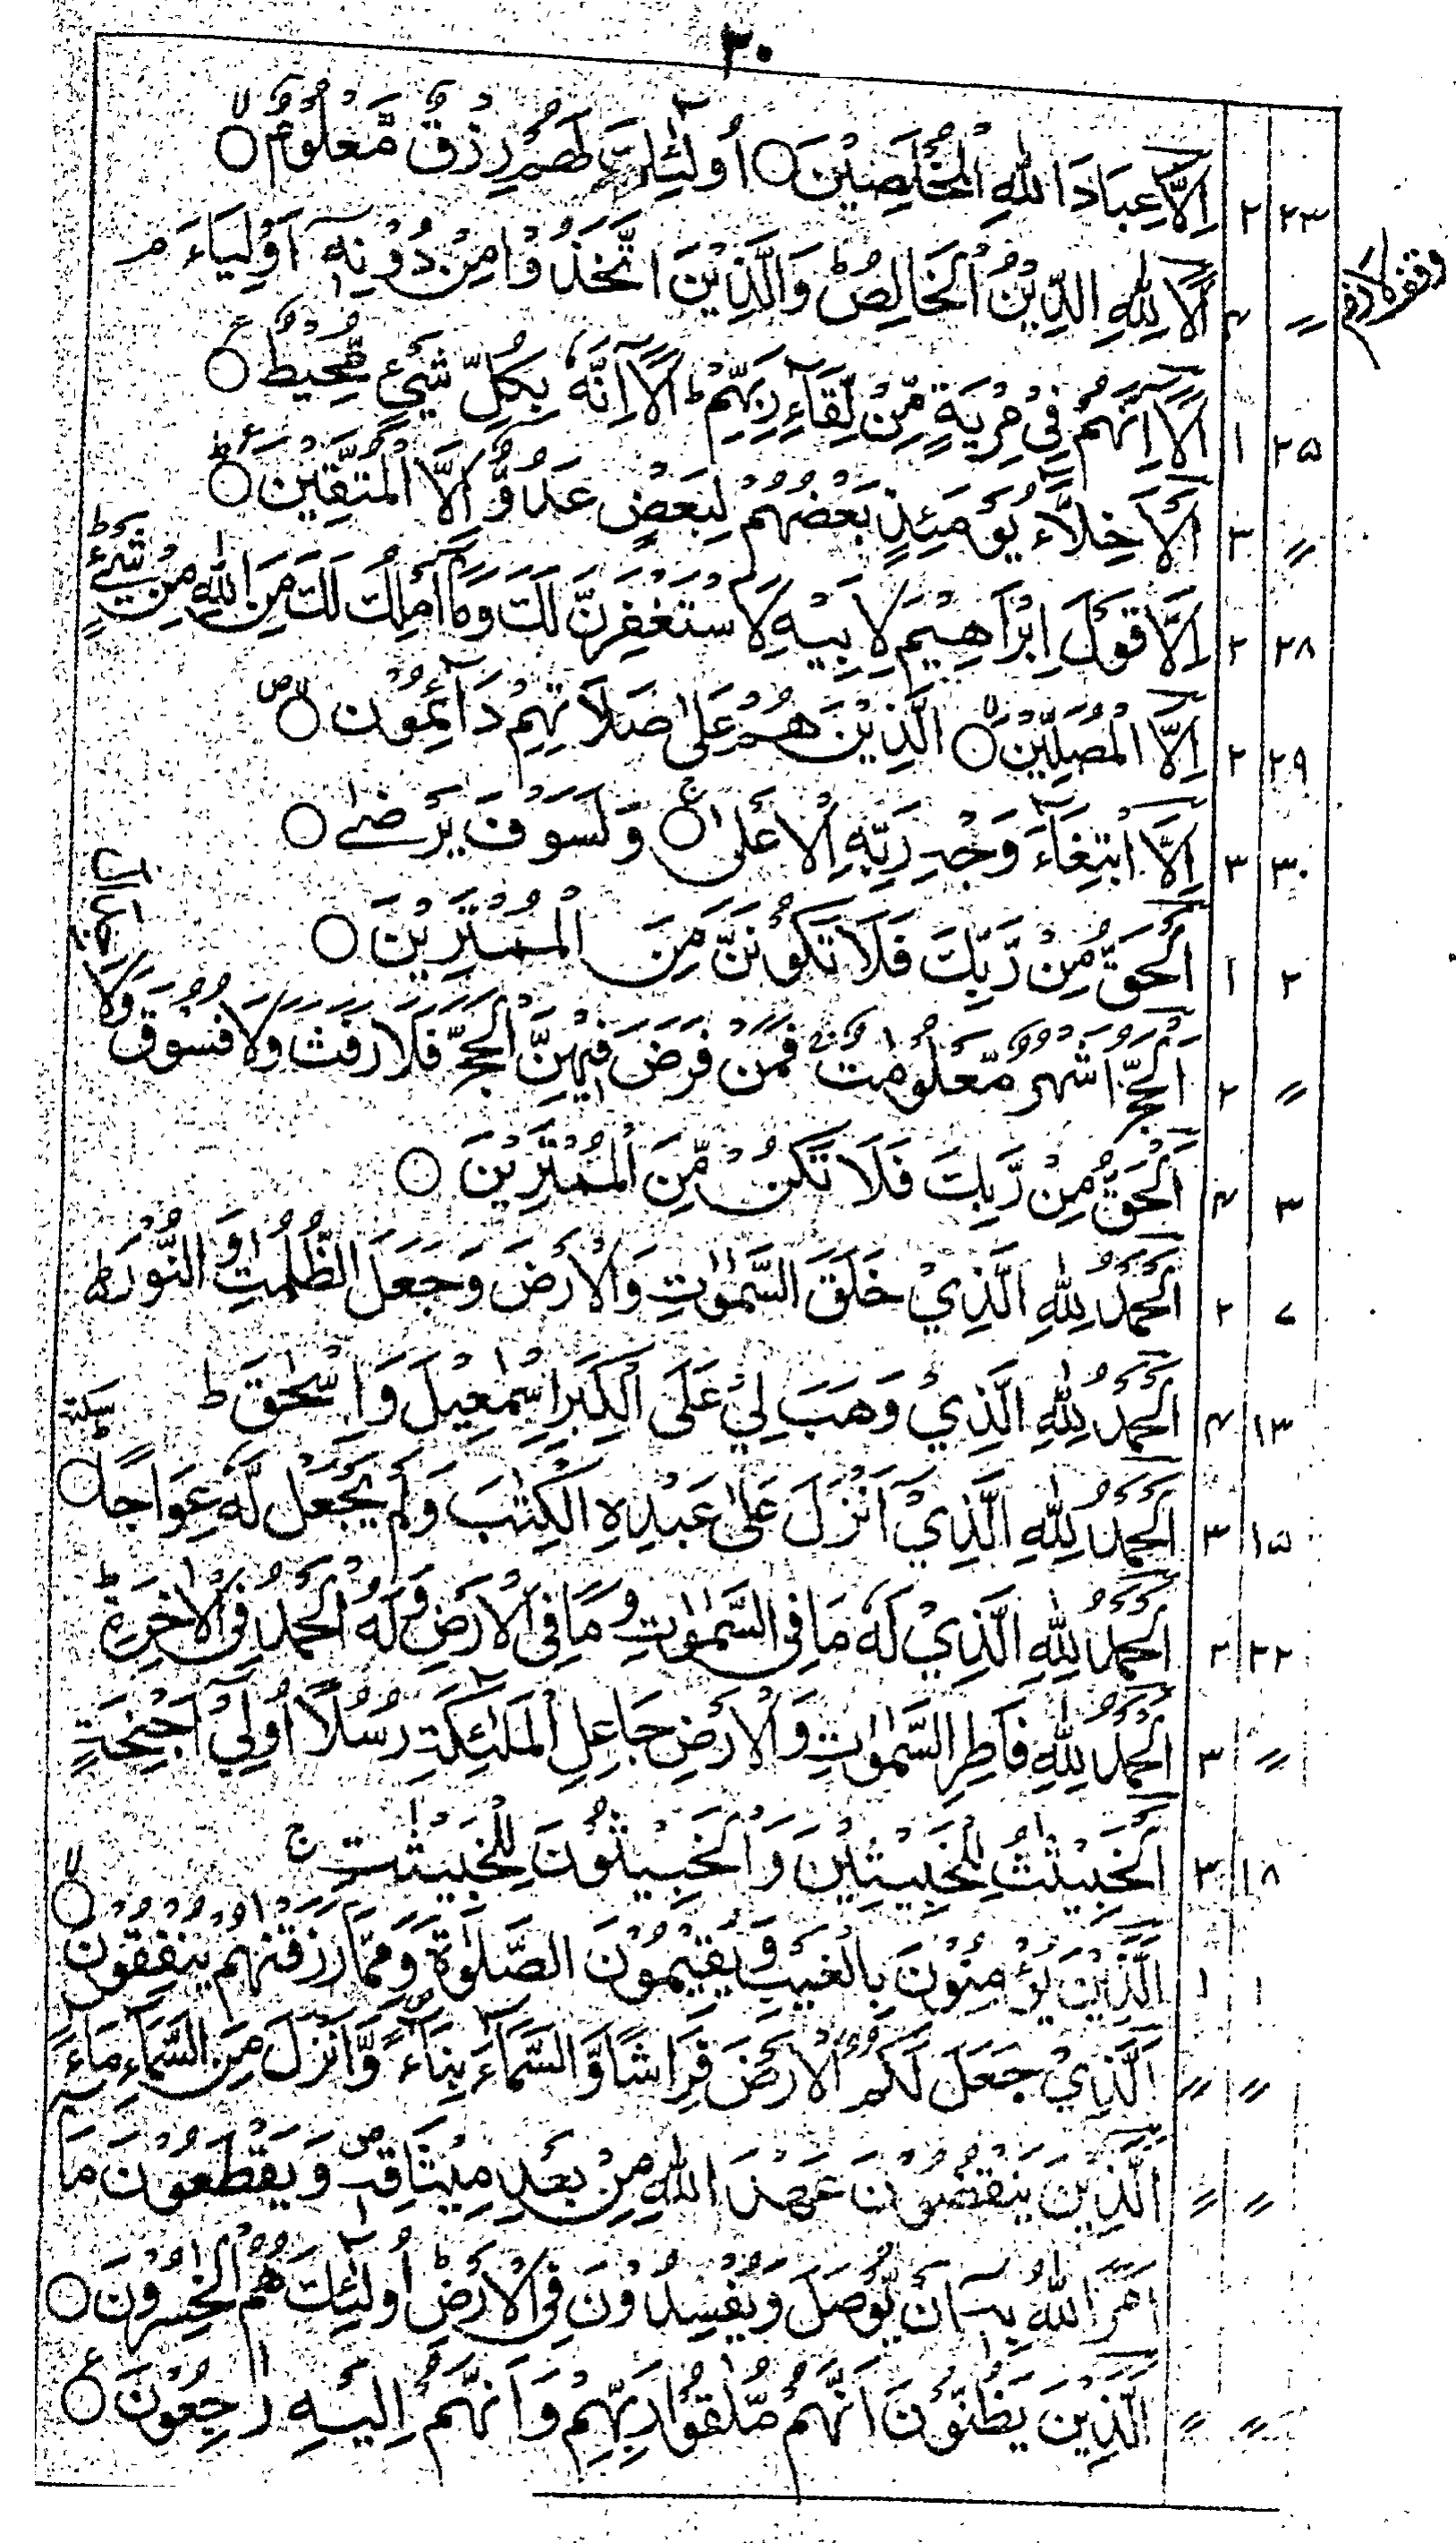 ۳۰
۲۳ ۲ اِلَّا عِبَادَ اللّٰهِ الْمُخْلَصِيْنَ ○ اُولٰٓئِكَ لَهُمْ رِزْقٌ مَّعْلُوْمٌ ○ لا
〃 ۴ اَلَا لِلّٰهِ الدِّيْنُ الْخَالِصُ ط وَالَّذِيْنَ اتَّخَذُوْا مِنْ دُوْنِهٖٓ اَوْلِيَآءَ م وقف لازم
۲۵ ۱ اَلَآ اِنَّهُمْ فِيْ مِرْيَةٍ مِّنْ لِّقَآءِ رَبِّهِمْ ط اَلَآ اِنَّهٗ بِكُلِّ شَيْءٍ مُّحِيْطٌ ○ ع
〃 ۳ اَلْاَخِلَّآءُ يَوْمَئِذٍ بَعْضُهُمْ لِبَعْضٍ عَدُوٌّ اِلَّا الْمُتَّقِيْنَ ○ ط ع
۲۸ ۲ اِلَّا قَوْلَ اِبْرَاهِيْمَ لِاَبِيْهِ لَاَسْتَغْفِرَنَّ لَكَ وَمَآ اَمْلِكُ لَكَ مِنَ اللّٰهِ مِنْ شَيْءٍ ط
۲۹ ۲ اِلَّا الْمُصَلِّيْنَ ○ لا الَّذِيْنَ هُمْ عَلٰى صَلَاتِهِمْ دَآئِمُوْنَ ○ لا ص
۳۰ ۳ اِلَّا ابْتِغَآءَ وَجْهِ رَبِّهِ الْاَعْلٰى ○ ج وَلَسَوْفَ يَرْضٰى ○
۲ ۱ اَلْحَقُّ مِنْ رَّبِّكَ فَلَا تَكُوْنَنَّ مِنَ الْمُمْتَرِيْنَ ○
〃 ۲ اَلْحَجُّ اَشْهُرٌ مَّعْلُوْمٰتٌ ج فَمَنْ فَرَضَ فِيْهِنَّ الْحَجَّ فَلَا رَفَثَ وَلَا فُسُوْقَ وَلَا
۳ ۴ اَلْحَقُّ مِنْ رَّبِّكَ فَلَا تَكُنْ مِّنَ الْمُمْتَرِيْنَ ○
۷ ۲ اَلْحَمْدُ لِلّٰهِ الَّذِيْ خَلَقَ السَّمٰوٰتِ وَالْاَرْضَ وَجَعَلَ الظُّلُمٰتِ وَالنُّوْرَ ط
۱۳ ۴ اَلْحَمْدُ لِلّٰهِ الَّذِيْ وَهَبَ لِيْ عَلَى الْكِبَرِ اِسْمٰعِيْلَ وَاِسْحٰقَ ط
۱۵ ۳ اَلْحَمْدُ لِلّٰهِ الَّذِيْٓ اَنْزَلَ عَلٰى عَبْدِهِ الْكِتٰبَ وَلَمْ يَجْعَلْ لَّهٗ عِوَاجًا ○ سكتة
۲۲ ۲ اَلْحَمْدُ لِلّٰهِ الَّذِيْ لَهٗ مَا فِي السَّمٰوٰتِ وَمَا فِي الْاَرْضِ وَلَهُ الْحَمْدُ فِي الْاٰخِرَةِ ط
〃 ۳ اَلْحَمْدُ لِلّٰهِ فَاطِرِ السَّمٰوٰتِ وَالْاَرْضِ جَاعِلِ الْمَلٰٓئِكَةِ رُسُلًا اُولِيْٓ اَجْنِحَةٍ
۱۸ ۳ اَلْخَبِيْثٰتُ لِلْخَبِيْثِيْنَ وَالْخَبِيْثُوْنَ لِلْخَبِيْثٰتِ ج
۱ ۱ الَّذِيْنَ يُؤْمِنُوْنَ بِالْغَيْبِ وَيُقِيْمُوْنَ الصَّلٰوةَ وَمِمَّا رَزَقْنٰهُمْ يُنْفِقُوْنَ ○ لا
〃 〃 الَّذِيْ جَعَلَ لَكُمُ الْاَرْضَ فِرَاشًا وَّالسَّمَآءَ بِنَآءً ص وَّاَنْزَلَ مِنَ السَّمَآءِ مَآءً
〃 〃 الَّذِيْنَ يَنْقُضُوْنَ عَهْدَ اللّٰهِ مِنْ بَعْدِ مِيْثَاقِهٖ ص وَيَقْطَعُوْنَ مَآ
اَمَرَ اللّٰهُ بِهٖٓ اَنْ يُّوْصَلَ وَيُفْسِدُوْنَ فِي الْاَرْضِ ط اُولٰٓئِكَ هُمُ الْخٰسِرُوْنَ ○
〃 〃 الَّذِيْنَ يَظُنُّوْنَ اَنَّهُمْ مُّلٰقُوْا رَبِّهِمْ وَاَنَّهُمْ اِلَيْهِ رٰجِعُوْنَ ○ ع